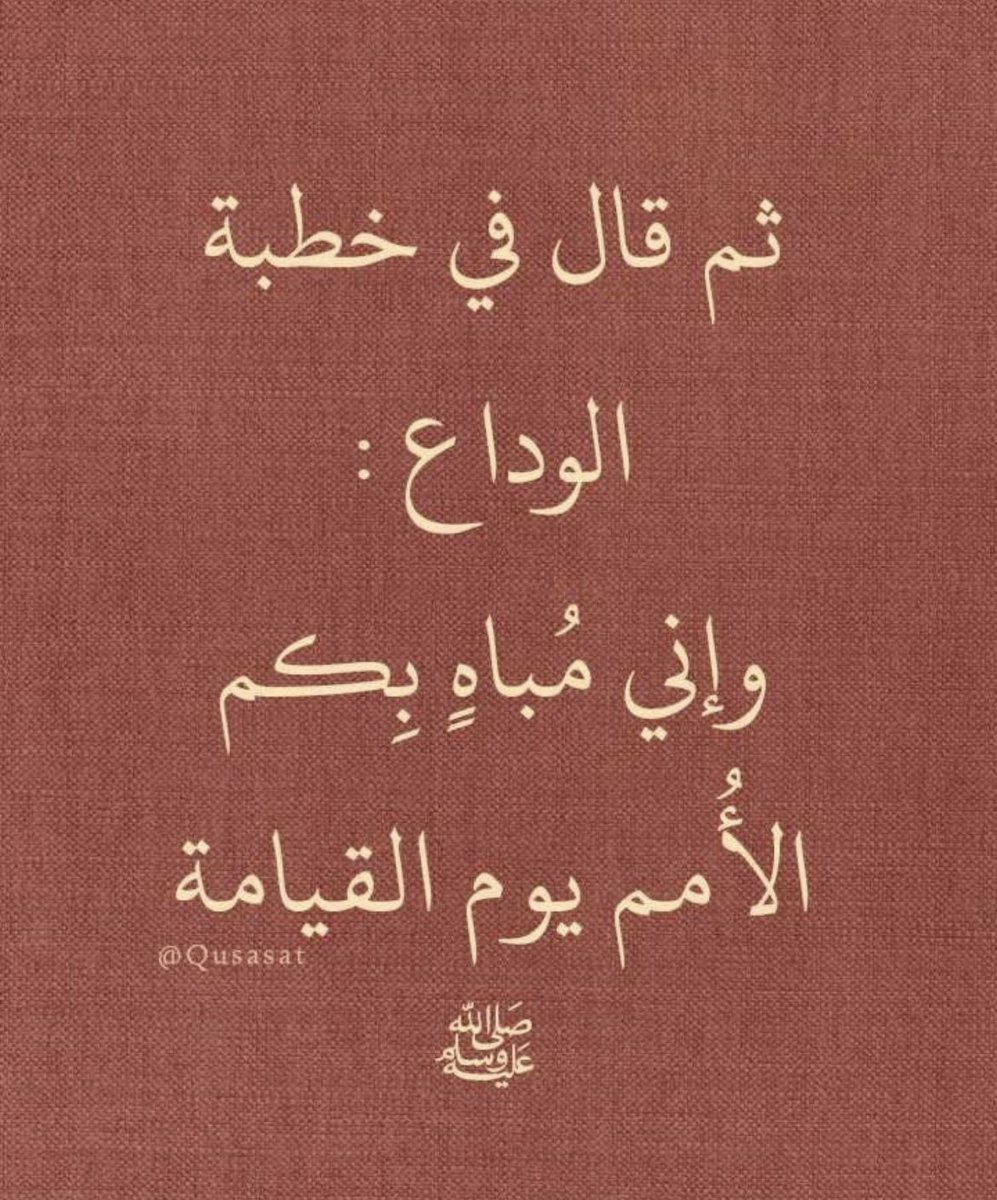 ثم قال في خطبة
الوداع :
وإني مُباهٍ بِكم
الأُمم يوم القيامة
@Qusasat
صَلى الله
عَليه وسلم